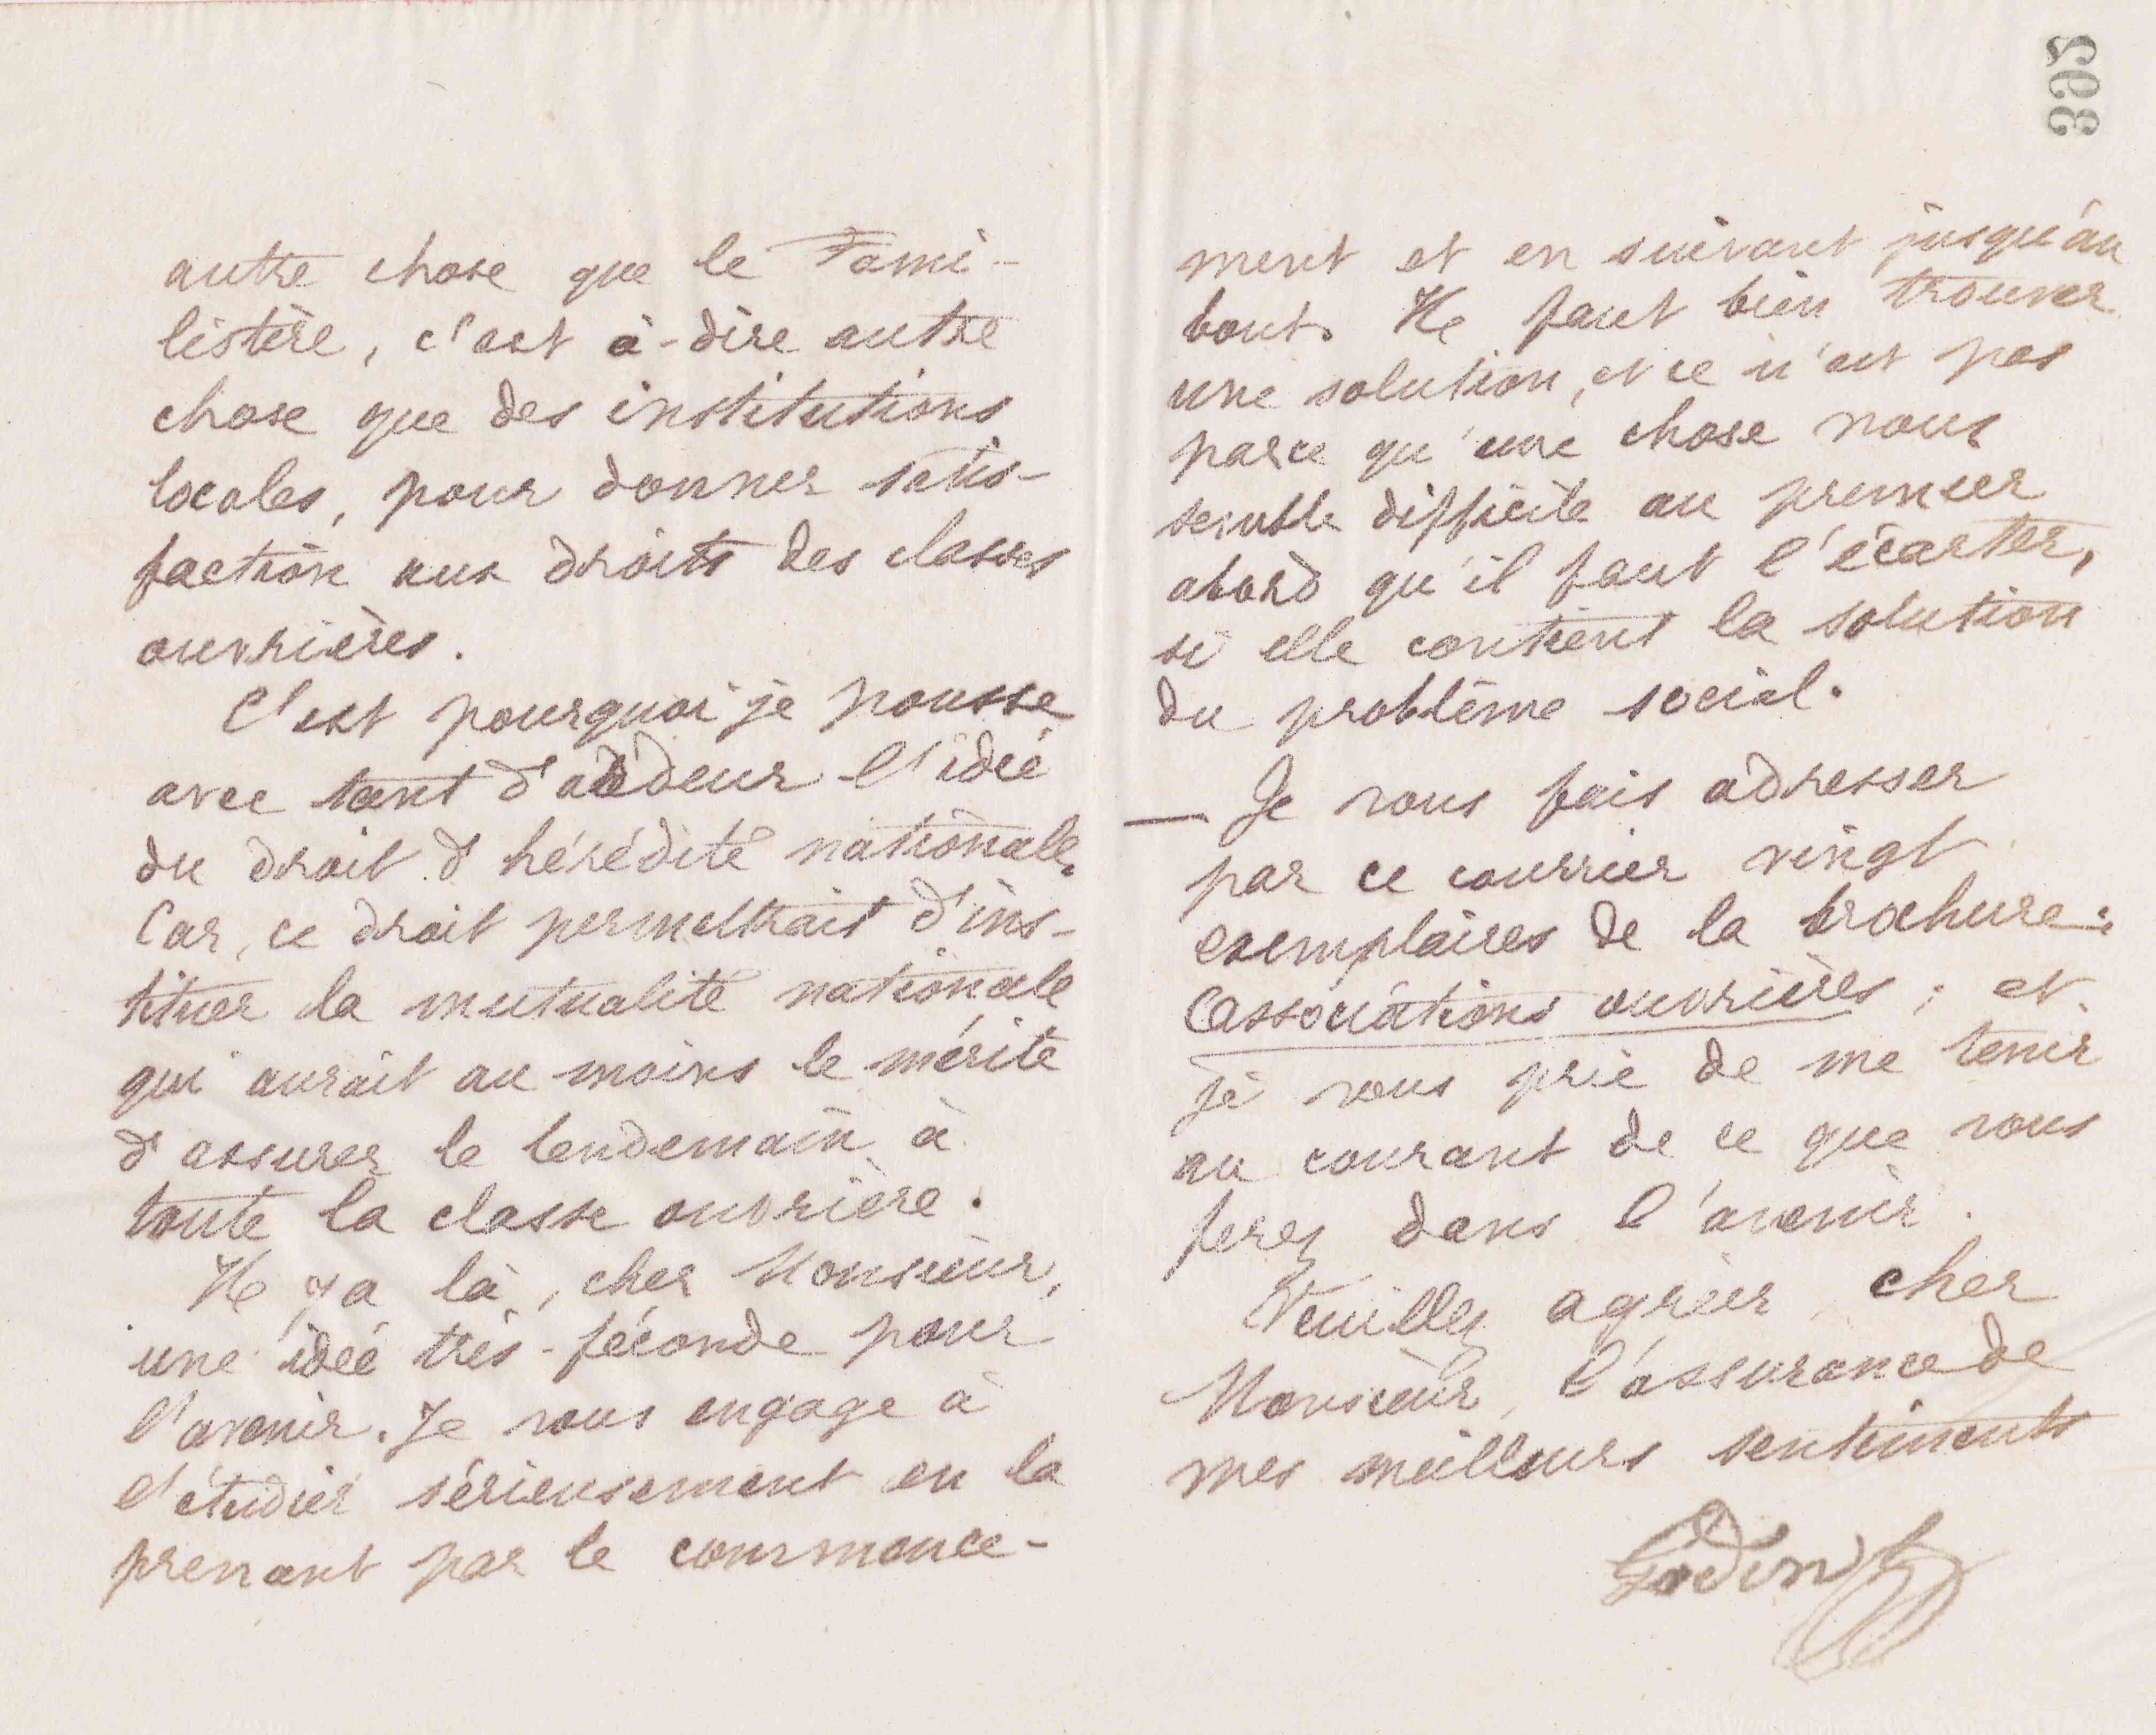 395
autre chose que le Fami-
listère, c'est à-dire autre
chose que des institutions
locales, pour donner satis-
faction aux droits des classes
ouvrières.
C'est pourquoi je pousse
avec tant d'ardeur l'idée
du droit d'hérédité nationale.
Car, ce droit permettrait d'ins-
tituer la mutualité nationale
qui aurait au moins le mérite
d'assurer le lendemain à
toute la classe ouvrière.
Il y a là, cher Monsieur,
une idée très-féconde pour
l'avenir. Je vous engage à
l'étudier sérieusement en la
prenant par le commence-
ment et en suivant jusqu'au
bout. Il faut bien trouver
une solution, et ce n'est pas
parce qu'une chose nous
semble difficile au premier
abord qu'il faut l'écarter,
si elle contient la solution
du problème social.
— Je vous fais adresser
par ce courrier vingt
exemplaires de la brochure:
Associations ouvrières; et
je vous prie de me tenir
au courant de ce que vous
ferez dans l'avenir.
Veuillez agréer cher
Monsieur, l'assurance de
mes meilleurs sentiments
Godin